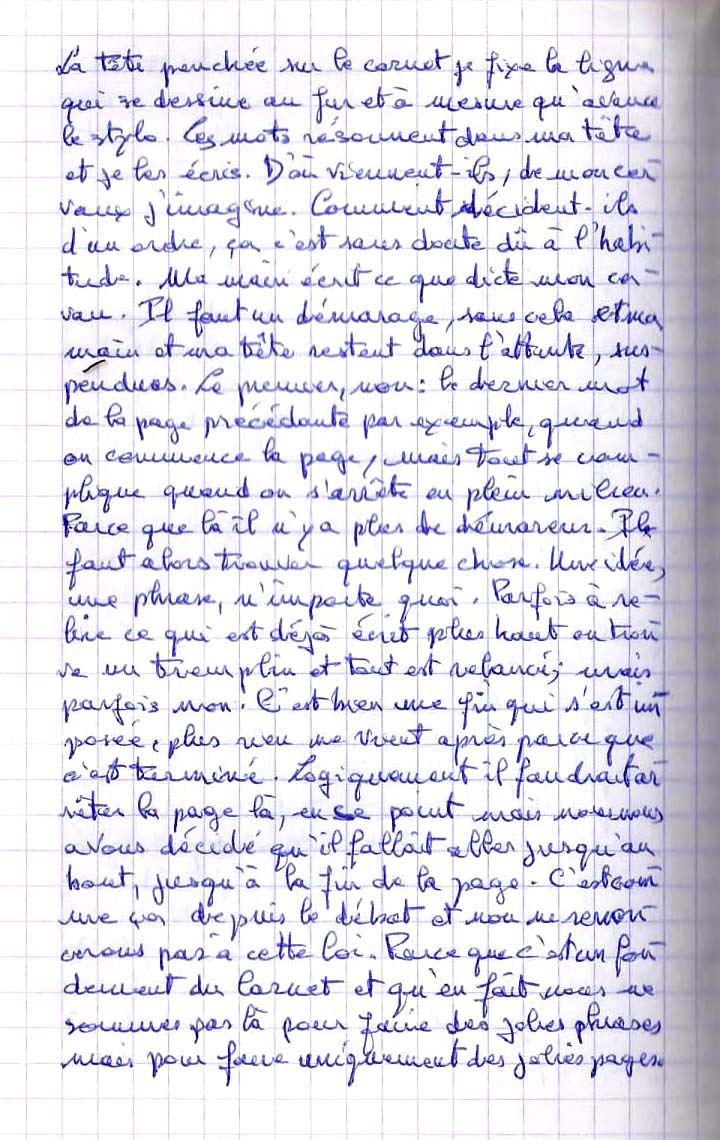 La tête penchée sur le carnet je fixe la ligne
qui se dessine au fur et à mesure qu'avance
le stylo. Les mots résonnent dans ma tête
et je les écris. D'où viennent-ils, de mon cer-
veau j'imagine. Comment décident-ils
d'un ordre, ça c'est sans doute dû à l'habi-
tude. Ma main écrit ce que dicte mon cer-
veau. Il faut un démarage, sans cela et ma
main et ma tête restent dans l'attente, sus-
pendues. Le premier, non : le dernier mot
de la page précédante par exemple, quand
on commence la page, mais tout se com-
plique quand on s'arrête en plein milieu.
Parce que là il n'y a plus de démareur. Il
faut alors trouver quelque chose. Une idée,
une phrase, n'importe quoi. Parfois à re-
lire ce qui est déjà écrit plus haut on trou-
ve un tremplin et tout est relancé, mais
parfois non. C'est bien une fin qui s'est im-
posée, plus rien ne vient après parce que
c'est terminé. Logiquement il faudrait ar-
rêter la page là, en se point mais nous nous
avons décidé qu'il fallait aller jusqu'au
bout, jusqu'à la fin de la page. C'est com-
me ça depuis le début et nou ne renon-
cerons pas à cette loi. Parce que c'est un fon-
dement du Carnet et qu'en fait nous ne
sommes pas là pour faire des jolies phrases
mais pour faire uniquement des jolies pages.